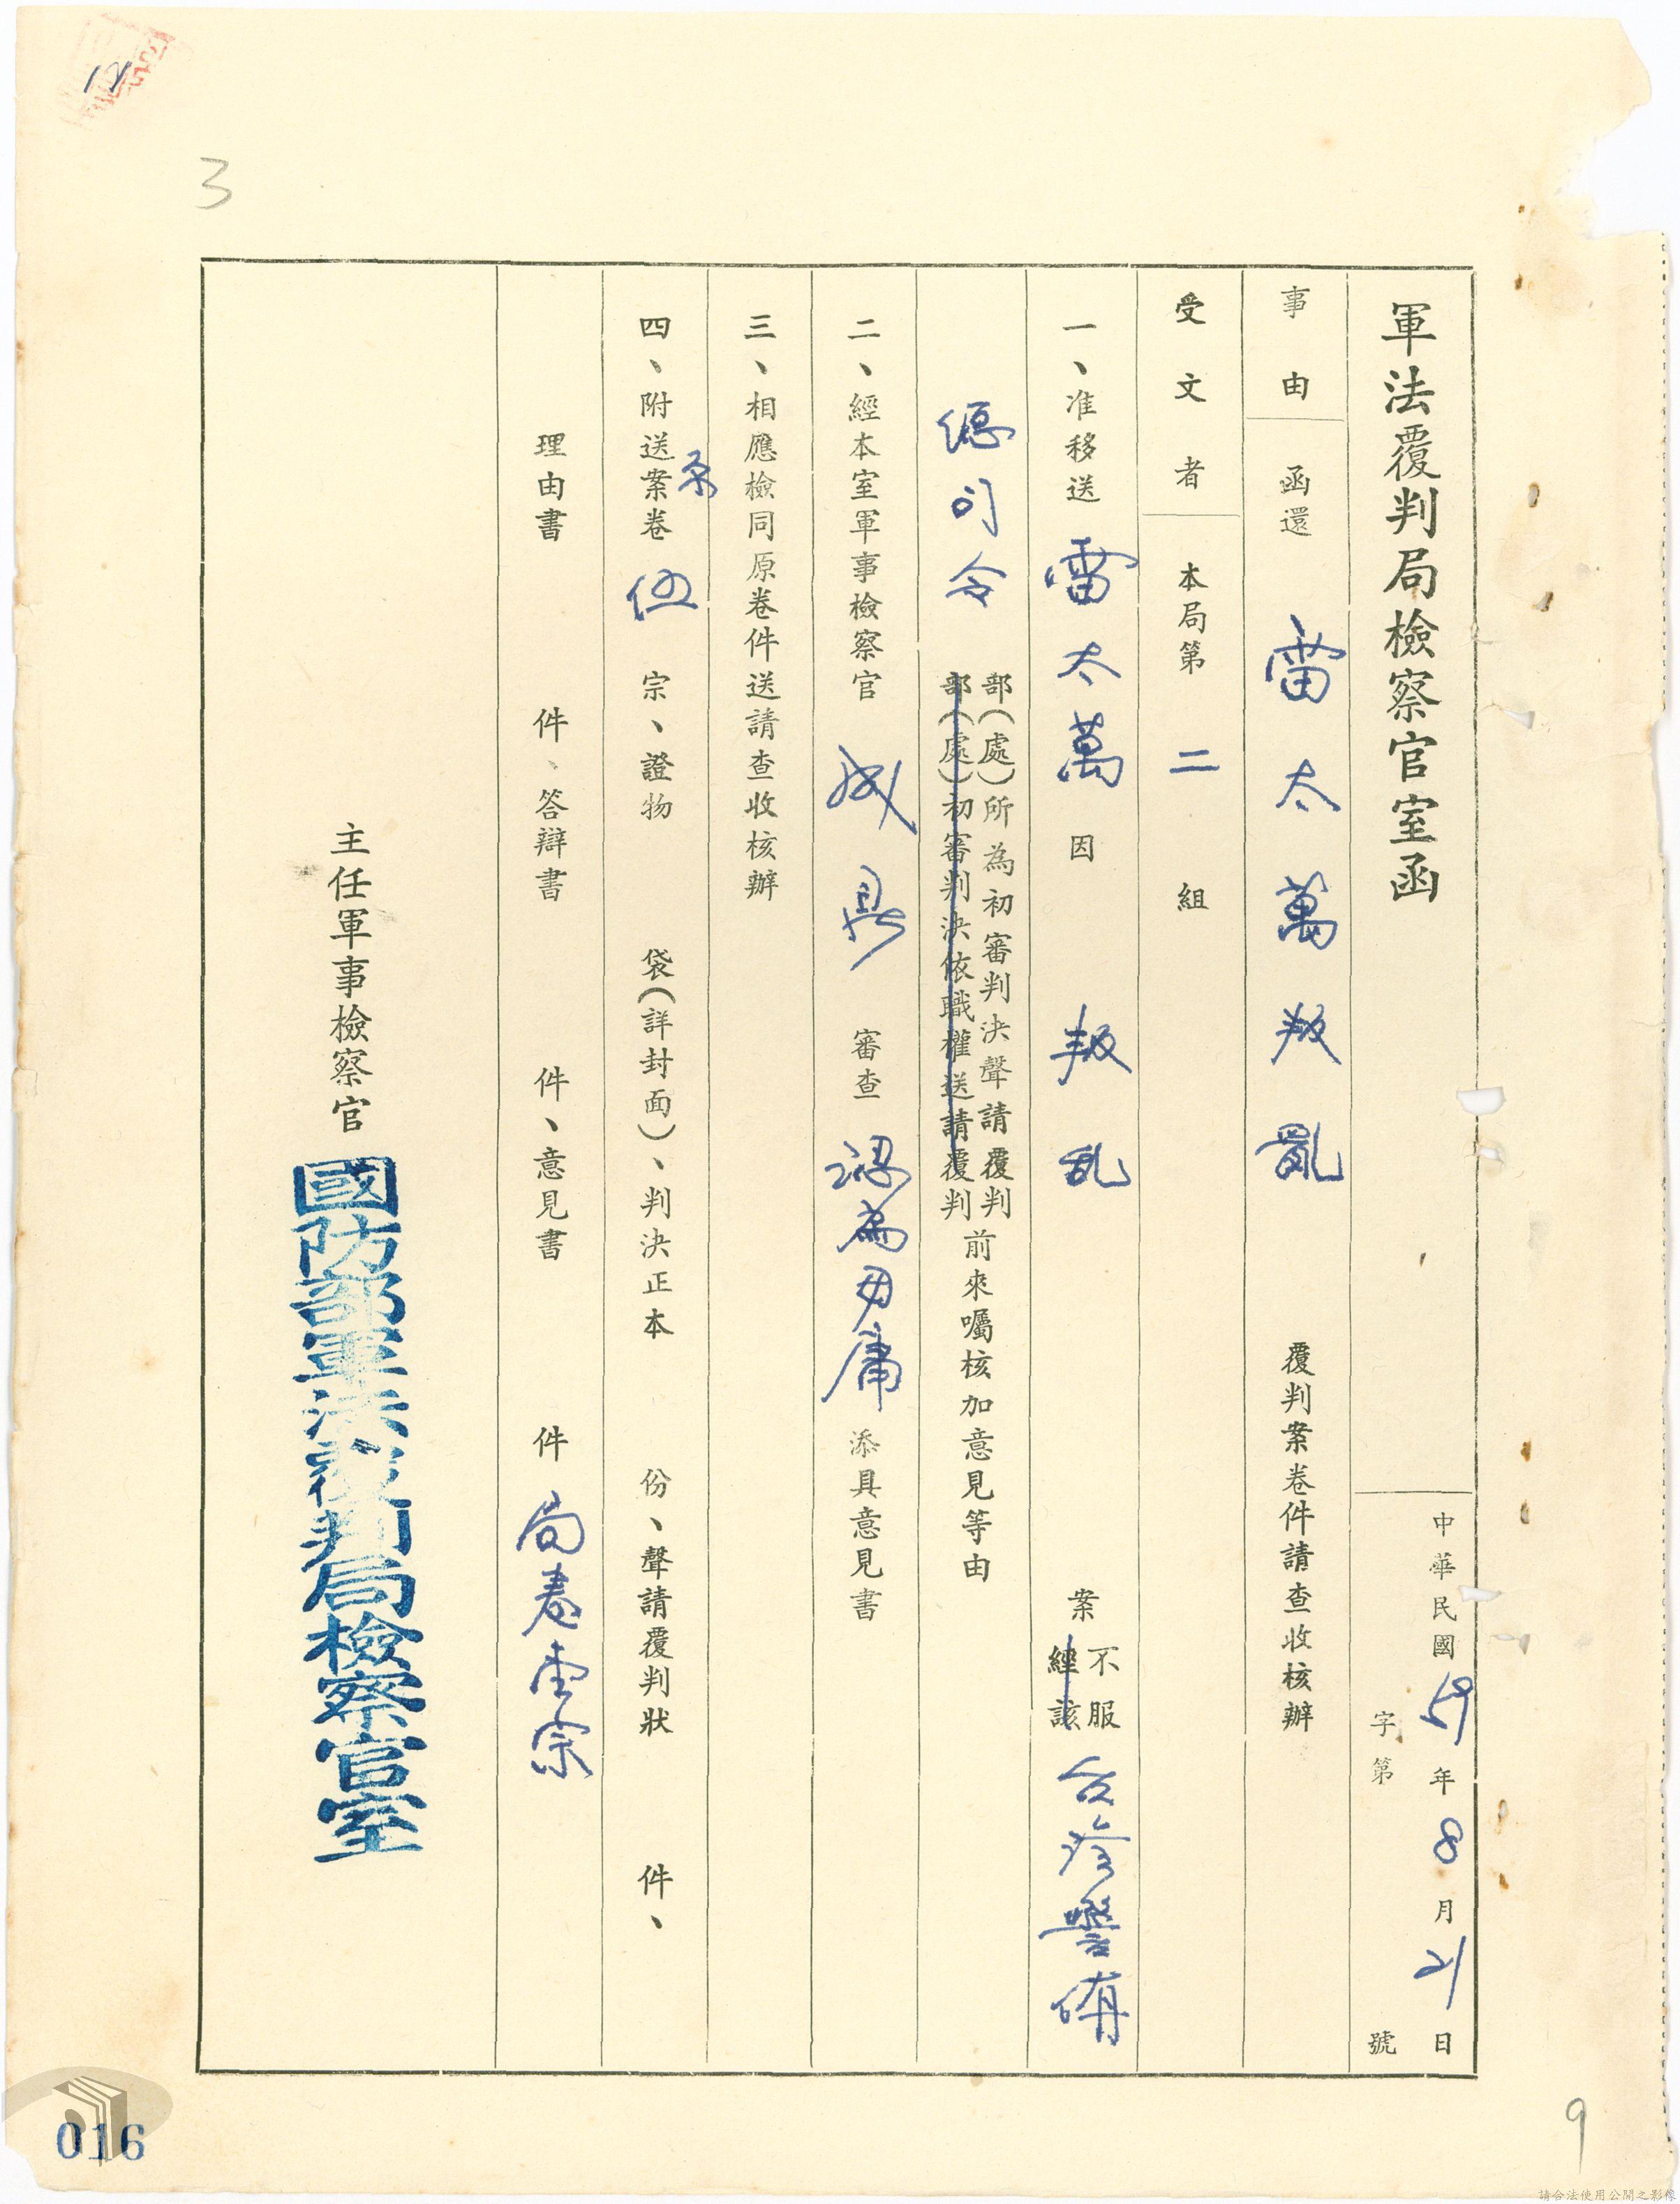 軍法覆判局檢察官室函
中華民國59年8月21日
字第 號
事由 函還 雷太萬叛亂 覆判案卷件請查收核辦
受文者 本局第二組
一、准移送 雷太萬 因 叛乱 案 不服 台湾警備
經該
總司令 部(處)所為初審判決聲請覆判 前來囑核加意見等由
部(處)初審判決依職權送請覆判
二、經本室軍事檢察官 成鼎 審查 認為毋庸 添具意見書
三、相應檢同原卷件送請查收核辦
四、附送案卷 伍 宗、證物 袋(詳封面)、判決正本 份、聲請覆判狀 件、
理由書 件、答辯書 件、意見書 件 局卷壹宗
主任軍事檢察官 國防部軍法覆判局檢察官室
12
3
9
016
請合法使用公開之影像